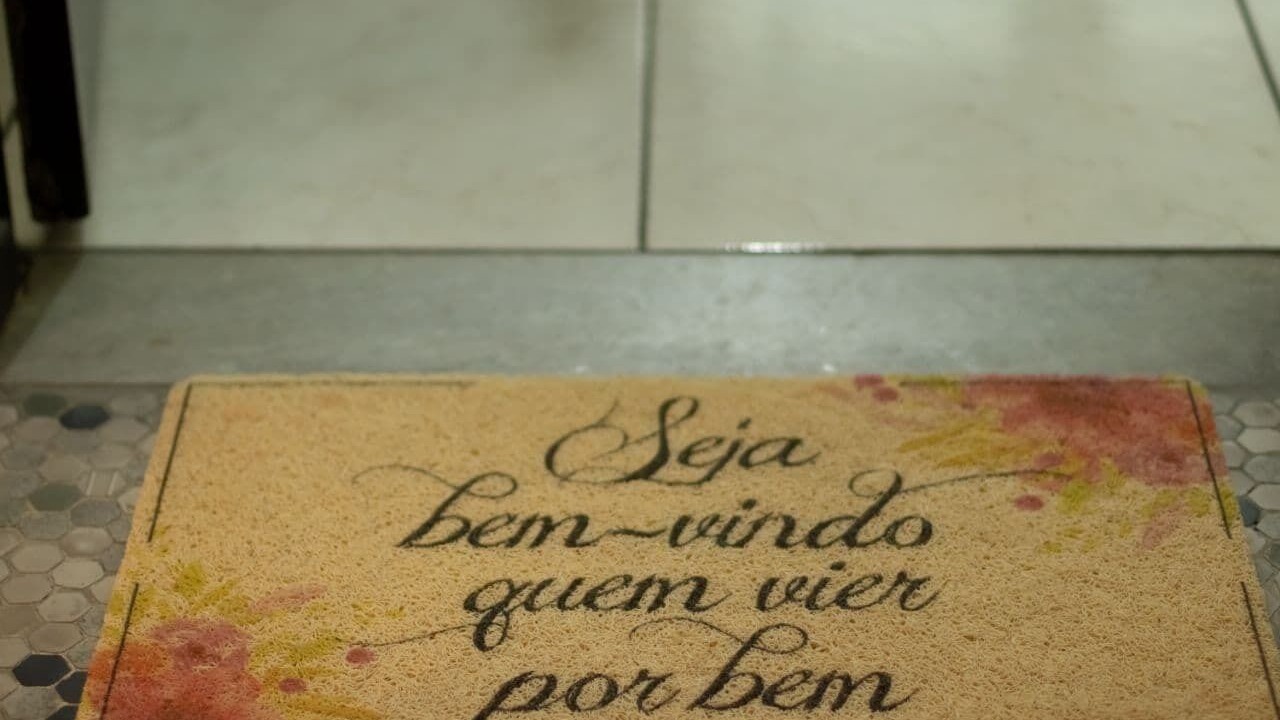 Seja
bem-vindo
quem vier
por bem